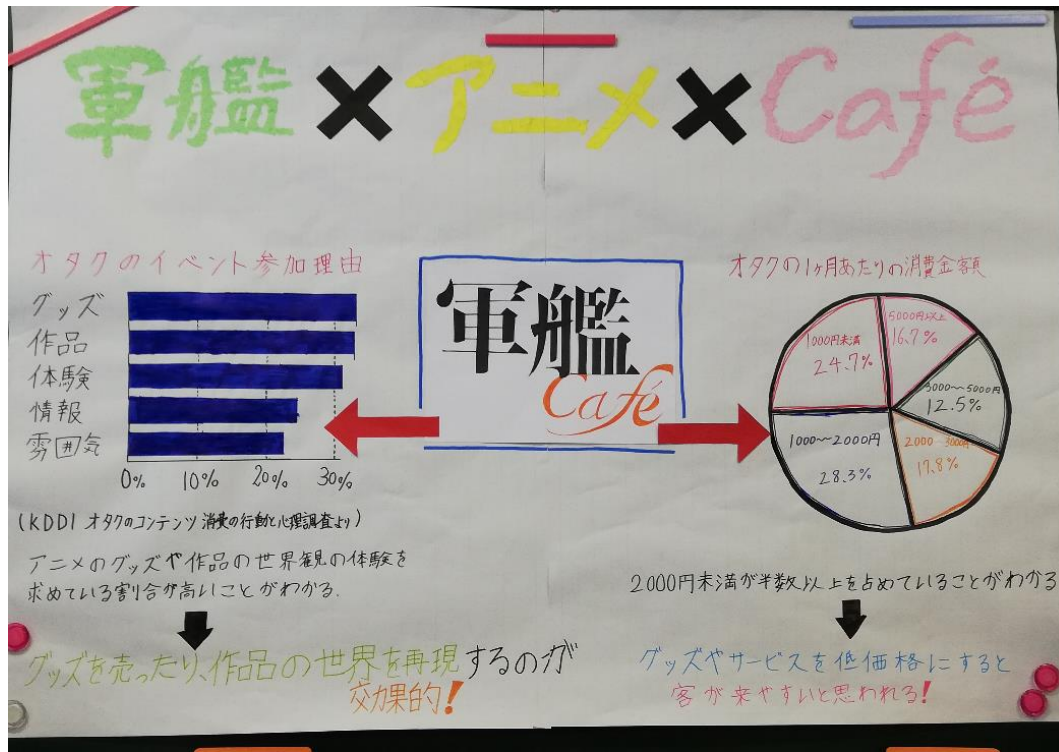 軍艦×アニメ×Café
オタクのイベント参加理由
グッズ
作品
体験
情報
雰囲気
0% 10% 20% 30%
(KDDI オタクのコンテンツ消費の行動と心理調査より)
アニメのグッズや作品の世界観の体験を
求めている割合が高いことがわかる.
グッズを売ったり、作品の世界を再現するのが
効果的!
軍艦
Café
オタクの1ヶ月あたりの消費金額
5000円以上
16.7%
3000~5000円
12.5%
2000~3000円
17.8%
1000~2000円
28.3%
1000円未満
24.7%
2000円未満が半数以上を占めていることがわかる
グッズやサービスを低価格にすると
客が来やすいと思われる!